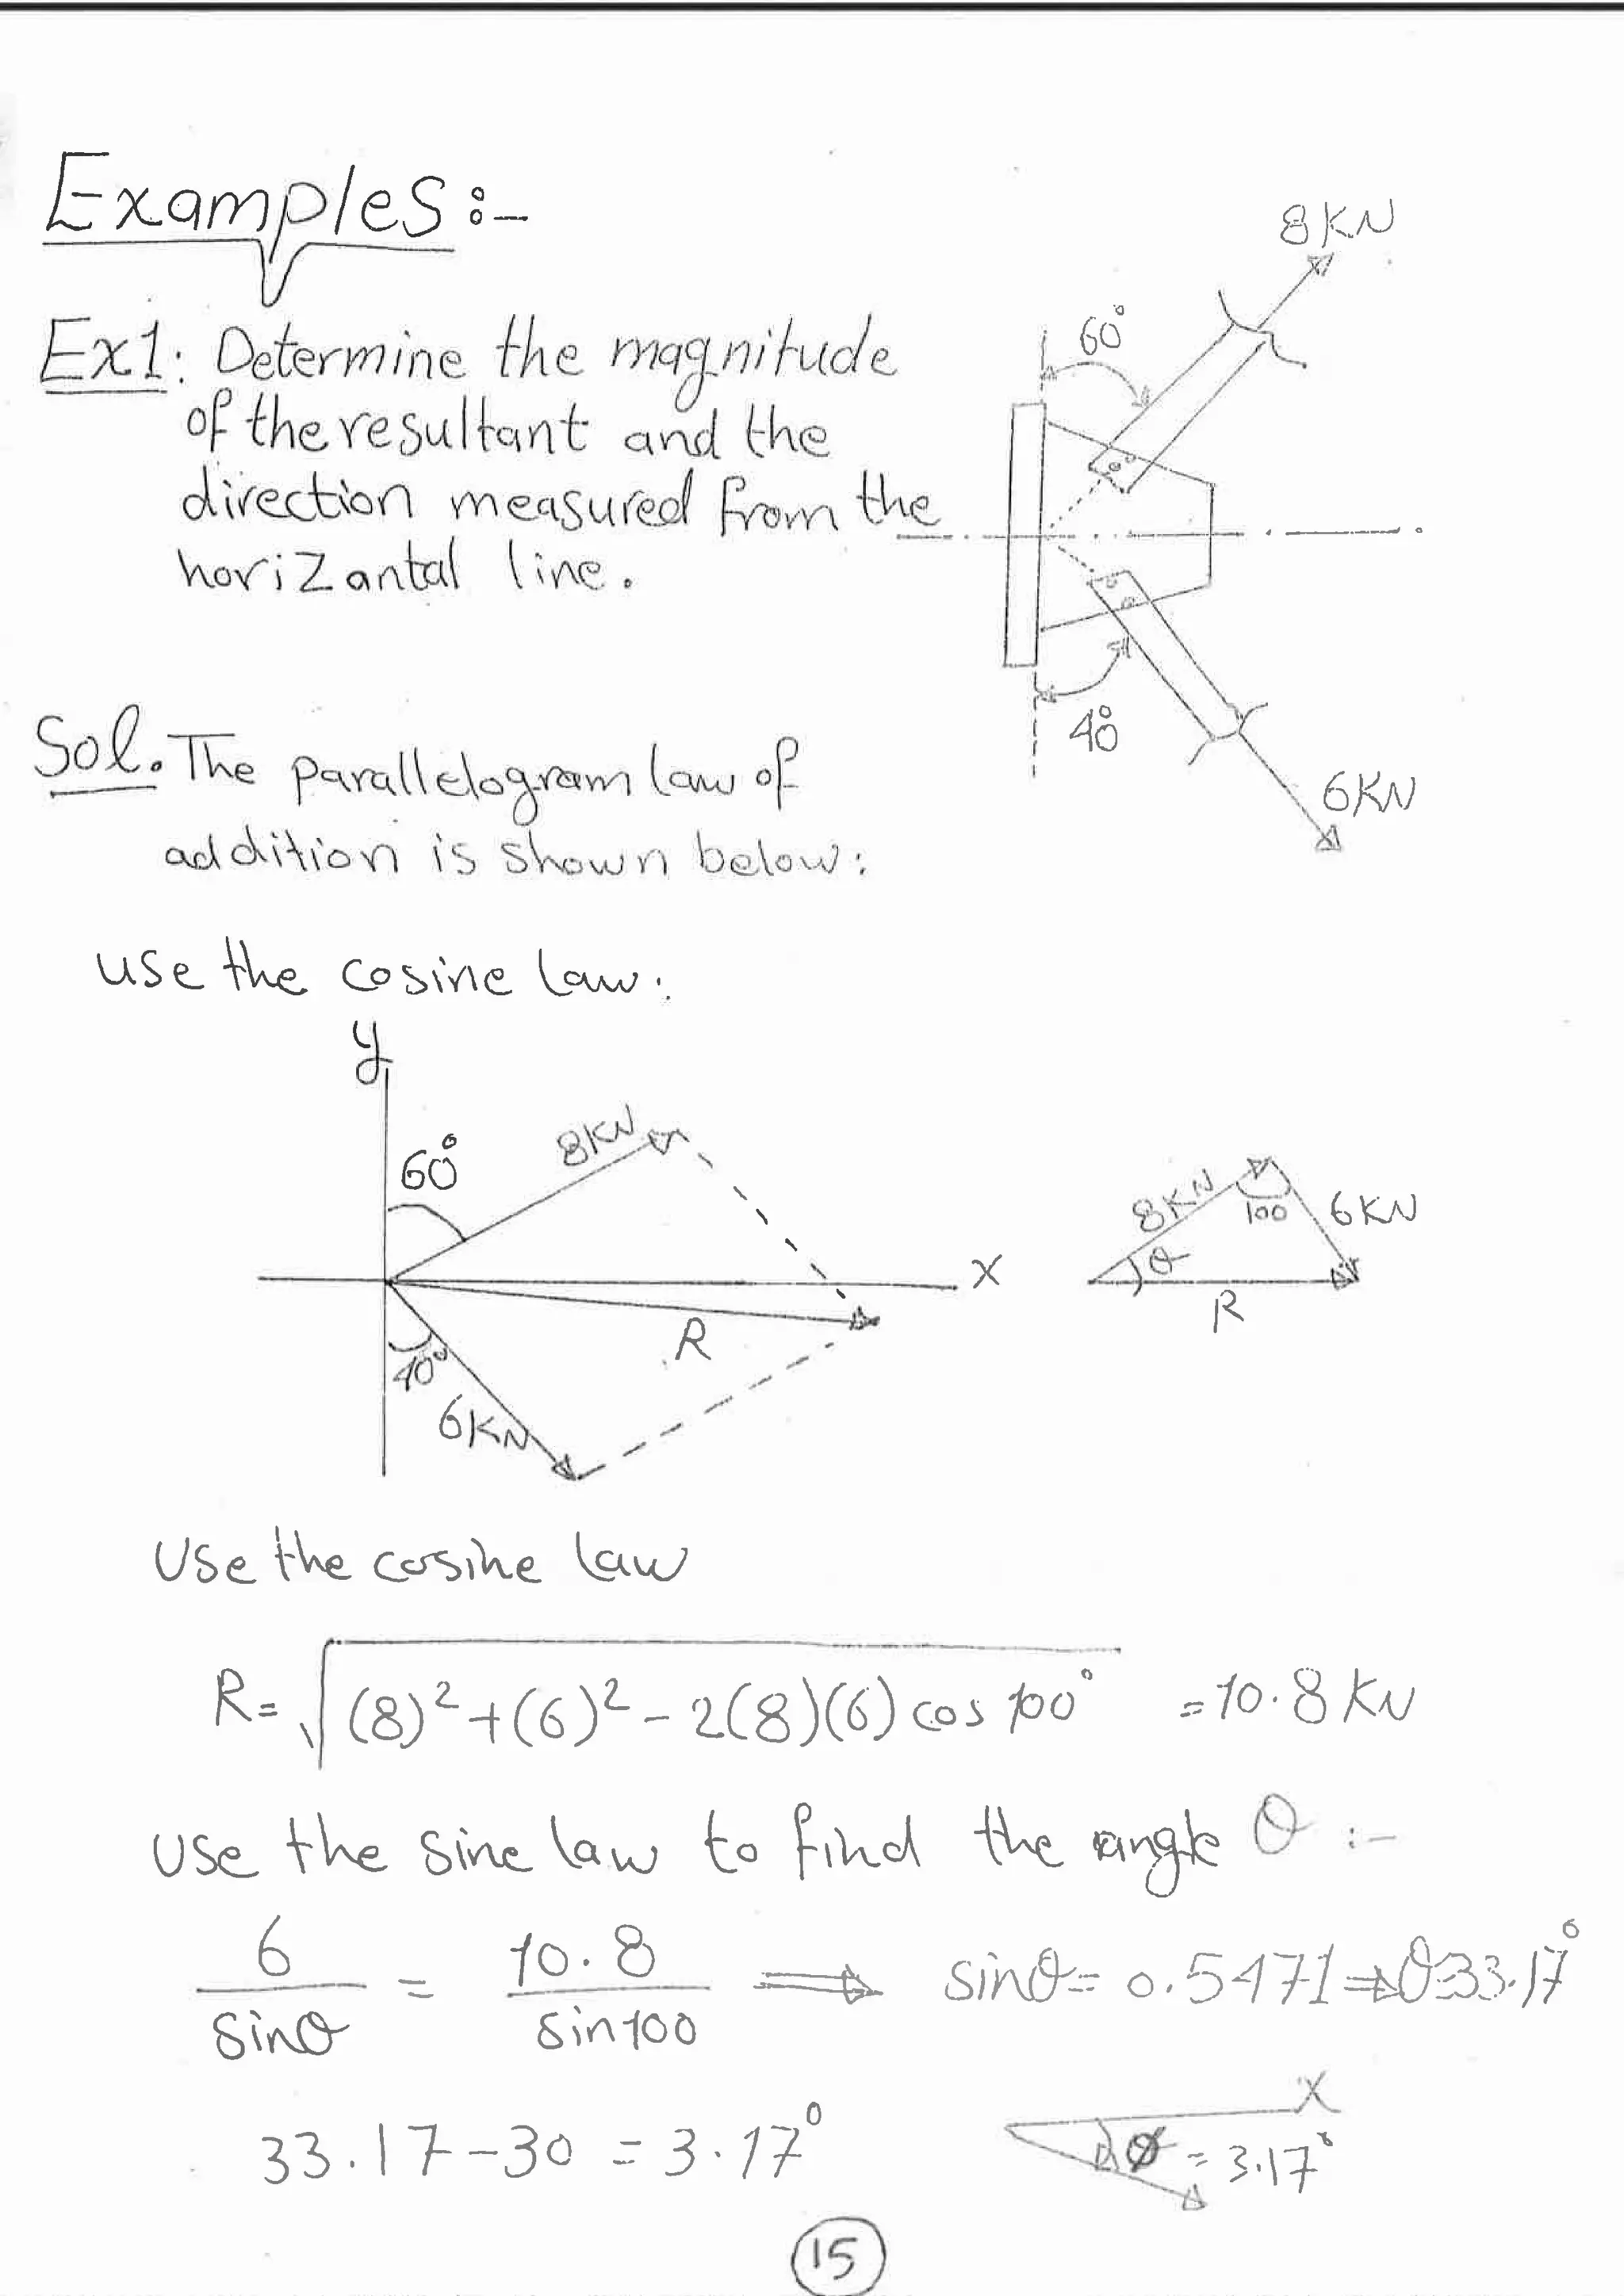 Examples:-
8KN
60°
Ex1: Determine the magnitude
of the resultant and the
direction measured from the
horizantal line.
40°
6KN
Sol. The parallelogram law of
addition is shown below:
use the cosine law:
y
60°
8KN
X
R
40°
6KN
8KN
100
6KN
θ
R
Use the cosine law
R=√(8)²+(6)²-2(8)(6)cos 100° =10.8 KN
Use the sine law to find the angle θ :-
6/sinθ = 10.8/sin100 ⟹ sinθ= 0.5471⇒θ=33.17°
33.17-30=3.17°
X
ϕ=3.17°
15